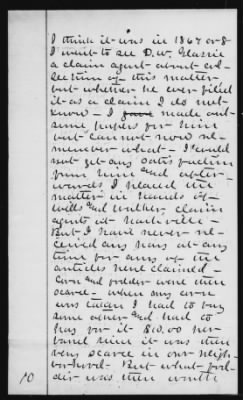 I think it was in 1867 or 8
I went to see D. W. Glassie
a claim agent about col-
lection of this matter
but whether he ever filed
it as a claim I do not
know - I made out
some papers for him
but cannot now re
member what - I could
not get any satisfaction
from him and after-
wards I placed the
matter in hands of
Wells and claim
agents at Nashville -
But I have never re-
ceived any pay at any
time for any of the
articles here claimed -
Corn and fodder were then
scarce - when my corn
was taken I had to buy
some other and had to
pay for it $10.00 per
barrel since it was then
very scarce in our neigh-
borhood - But what fod-
der was then worth
10